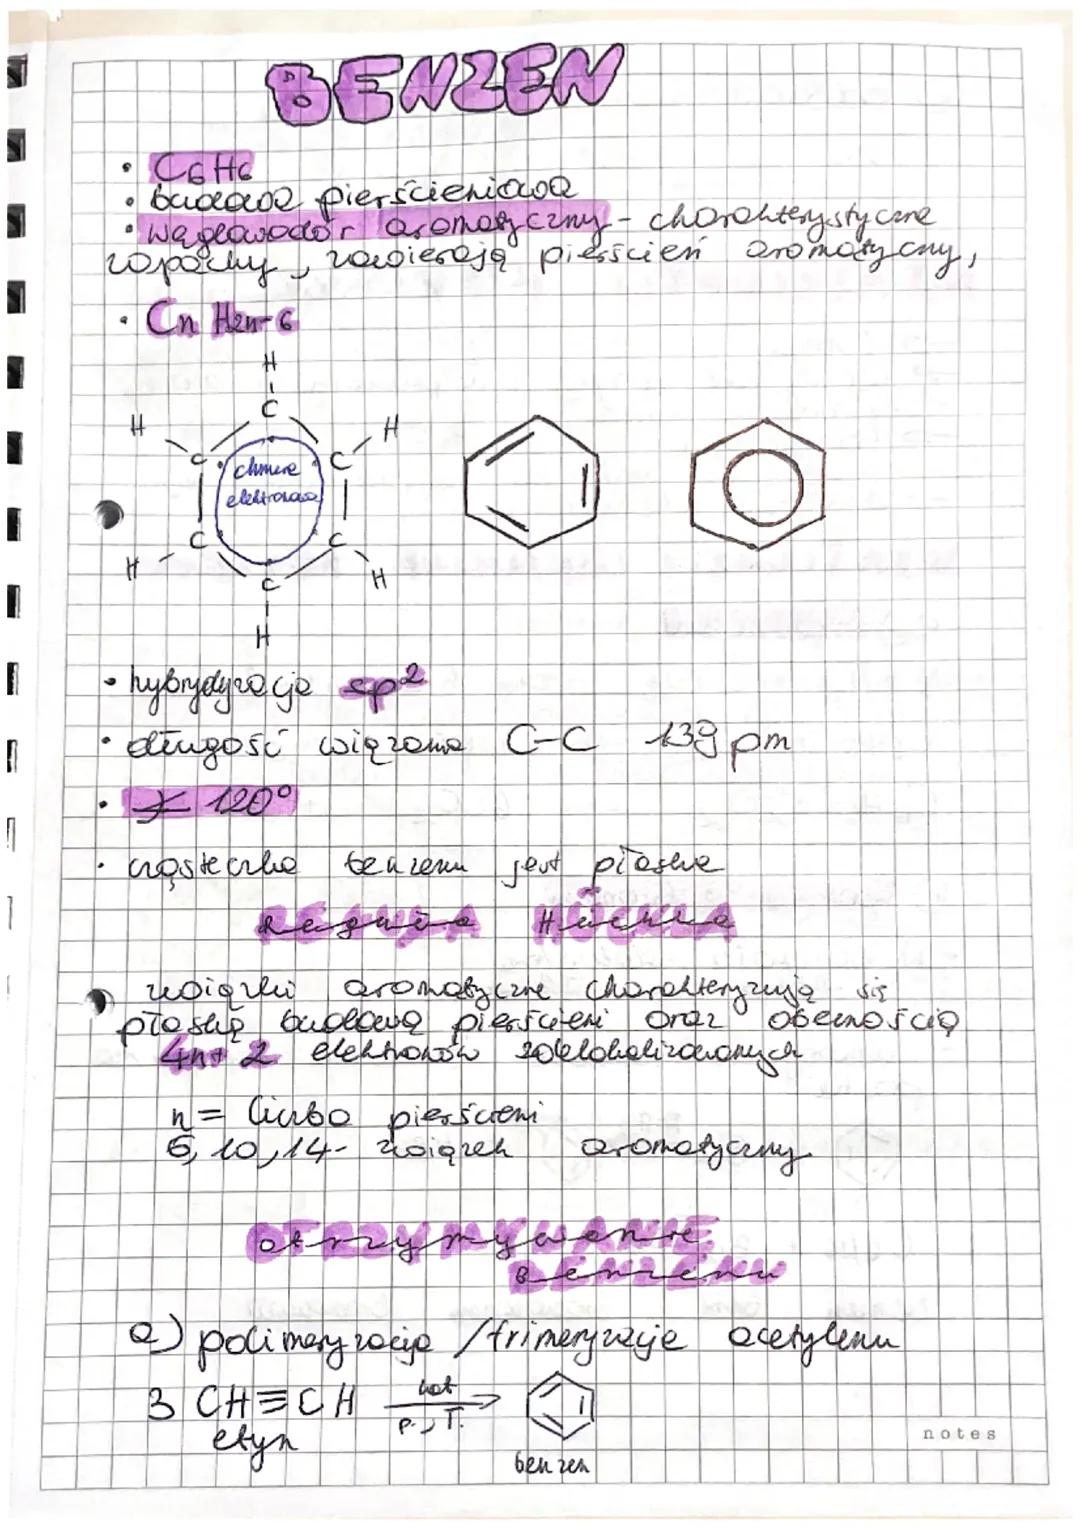 BENZEN
• C6H6
• budowa pierścieniowa
• węglowodór aromatyczny - charakterystyczne
zapachy, zawierają pierścień aromatyczny,
• Cn H2n-6
H
C
H H
C chmura C
elektronowa
C C
H C H
H
• hybrydyzacja sp²
• długość wiązania C-C 139 pm
• ∡ 120°
• cząsteczka benzenu jest płaska
Reguła Hückla
związki aromatyczne charakteryzują się
płaską budową pierścieni oraz obecnością
4n+2 elektronów zdelokalizowanych
n = liczba pierścieni
6, 10, 14 - związek aromatyczny
otrzymywanie
Benzenu
a) polimeryzacja / trimeryzacja acetylenu
3 CH≡CH kat
p., T.
etyn
benzen
notes